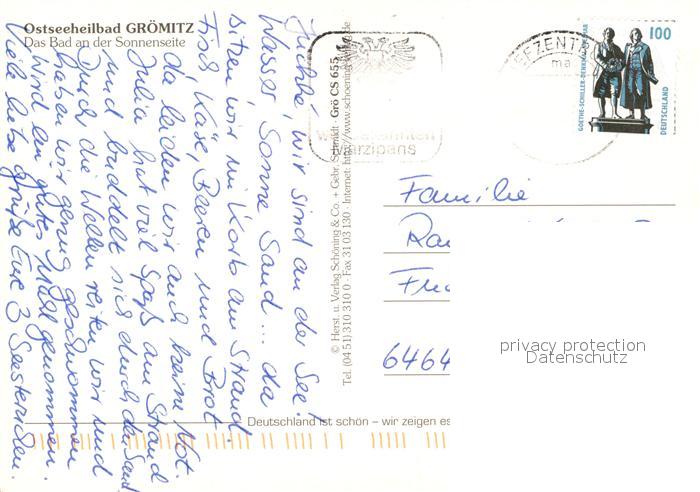 Ostseeheilbad GRÖMITZ
Das Bad an der Sonnenseite
Juchhe, wir sind an der See!
Wasser, Sonne, Sand... da
sitzen wir im Korb am Strand.
Fisch, Käse, Beeren und Brot
da leiden wir auch keine Not.
Julia hat viel Spaß am Strand
und buddelt sich durch den Sand.
Durch die Wellen reiten wir und
haben wir genug geschwommen
wird ein gutes Mahl genommen.
Viele liebe Grüße Eure 3 Seesternchen.
© Herst. u. Verlag Schöning & Co. + Gebr. Schmidt · Grö CS 655
Tel. (04 51) 310 310 0 · Fax 31 03 130 · Internet: http://www.schoening-verlag.de
marzipans
100
GOETHE-SCHILLER-DENKMAL
DEUTSCHLAND
Familie
6464
privacy protection
Datenschutz
Deutschland ist schön – wir zeigen es